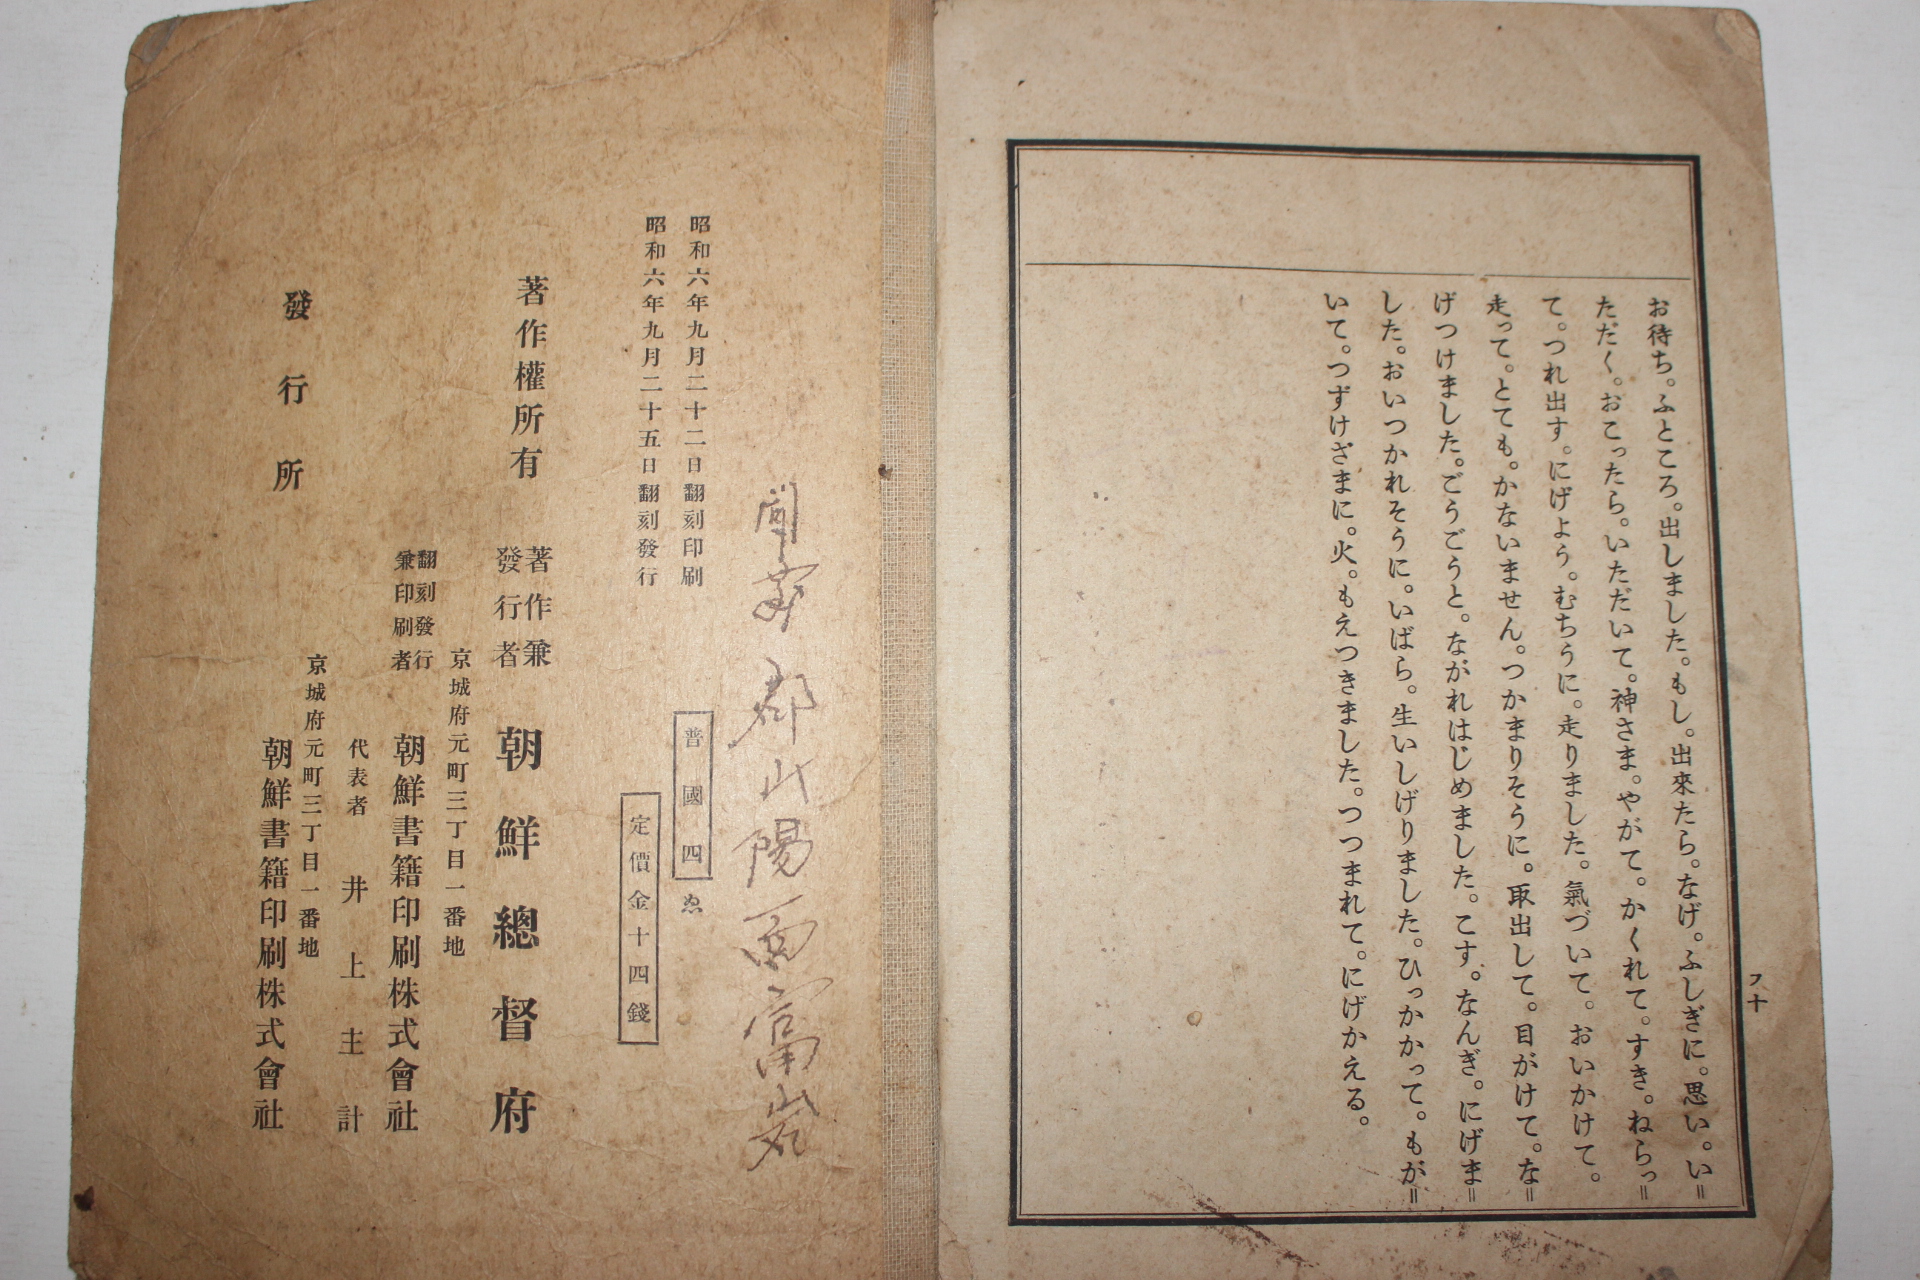 お待ち。ふところ。出しました。もし。出來たら。なげ。ふしぎに。思い。い＝
ただく。おこったら。いただいて。神さま。やがて。かくれて。すき。ねらっ＝
て。つれ出す。にげよう。むちうに。走りました。氣づいて。おいかけて。
走って。とても。かないません。つかまりそうに。取出して。目がけて。な＝
げつけました。ごうごうと。ながれはじめました。こす。なんぎ。にげま＝
した。おいつかれそうに。いばら。生いしげりました。ひっかかって。もが＝
いて。つずけざまに。火。もえつきました。つつまれて。にげかえる。
八十
郡山陽面富
昭和六年九月二十二日翻刻印刷
昭和六年九月二十五日翻刻發行
普國四
ゑ
定價金十四錢
著作權所有
著作兼
發行者
朝鮮總督府
京城府元町三丁目一番地
翻刻發行
兼印刷者
朝鮮書籍印刷株式會社
代表者 井上主計
京城府元町三丁目一番地
發行所
朝鮮書籍印刷株式會社